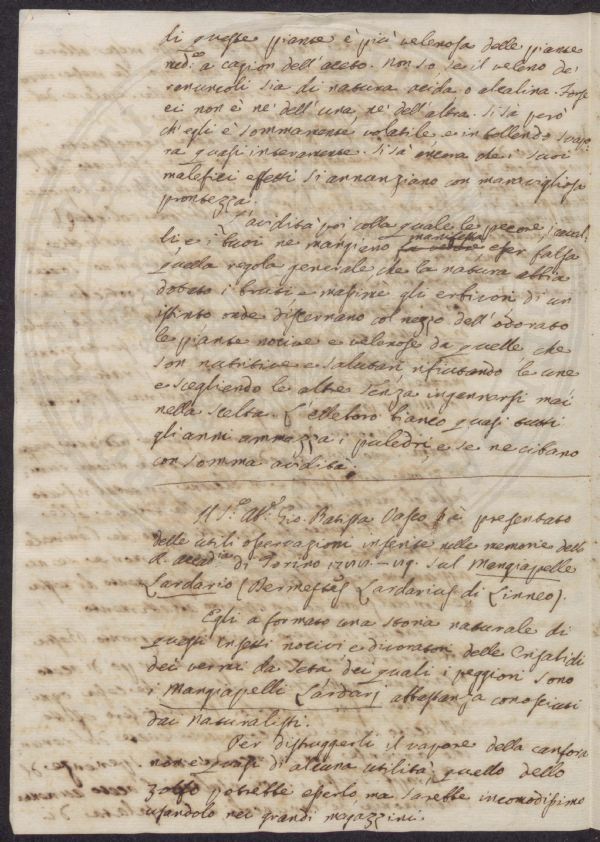 di queste piante è più velenosa delle piante
med.e a cagion dell'aceto. Non so se il veleno de'
ranuncoli sia di natura acida o alcalina. Forse
ei non è nè dell'una, nè dell'altra. Si sà però
ch'egli è sommamente volatile, e in bollendo svapo-
ra quasi interamente. Si sà ancora che i suoi
malefici effetti si annunziano con maravigliosa
prontezza.
L'avidità poi colla quale le pecore, i caval-
li e i buoi ne mangiano manifesta esser falsa
quella regola generale che la natura abbia
dotato i bruti e massime gli erbivori di un
istinto onde discernano col mezzo dell'odorato
le piante nocive e velenose da quelle che
son nutritive e salutari, rifiutando le une
e scegliendo le altre senza ingannarsi mai
nella scelta. L'elleboro bianco quasi tutti
gli anni ammazza i puledri, e se ne cibano
con somma avidità.
Il S.r Ab.e Gio. Batista Vasco à presentato
delle utili osservazioni inserite nelle memorie della
R. Accad.ia di Torino sul Mangiapelle
Lardario (Dermestes Lardarius di Linneo).
Egli à formato una storia naturale di
questi insetti nocivi e divoratori delle Crisalidi
dei vermi da Seta dei quali i peggiori sono
i Mangiapelli Lardarj abbastanza conosciuti
dai Naturalisti.
Per distruggerli il vapore della canfora
non è quasi d'alcuna utilità; quello dello
zolfo potrebbe esserlo, ma sarebbe incomodissimo
usandolo nei grandi magazzini.